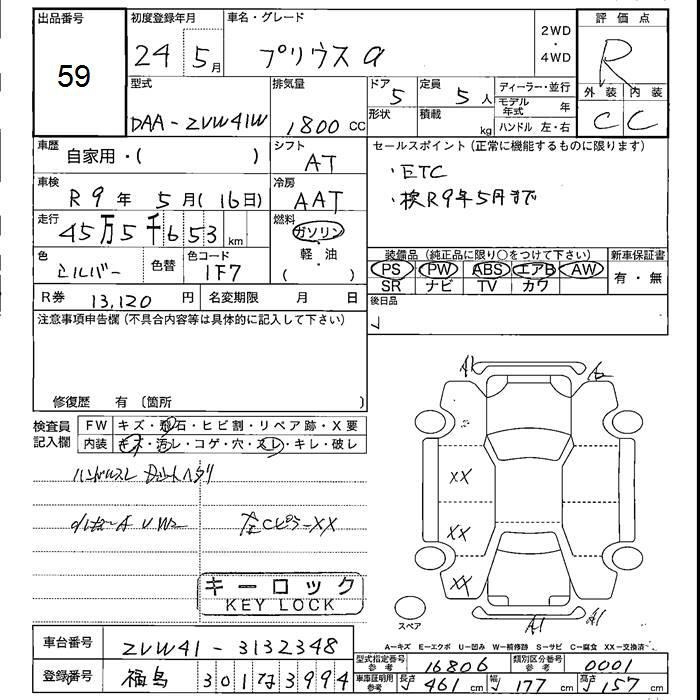 出品番号
59
初度登録年月
24 5月
車名・グレード
プリウス α
2WD
・
4WD
評価点
R
外装 内装
C C
型式
DAA-ZVW41W
排気量
1800 CC
ドア
5
形状
定員
5人
積載
kg
ディーラー・並行
モデル年式 年
ハンドル 左・右
車歴
自家用・( )
シフト
AT
セールスポイント(正常に機能するものに限ります)
・ETC
・検R9年5月まで
車検
R9年 5月(16日)
冷房
AAT
走行
45万5千653 km
燃料
ガソリン
・
軽・油
( )
色
シルバー
色替
色コード
1F7
装備品(純正品に限り○をつけて下さい)
PS PW ABS エアB AW
SR ナビ TV カワ
新車保証書
有・無
R券 13,120 円
名変期限 月 日
後日品
注意事項申告欄(不具合内容等は具体的に記入して下さい)
修復歴 有〔箇所 〕
検査員
記入欄
FW キズ・飛石・ヒビ割・リペア跡・X要
内装 キズ・汚レ・コゲ・穴・スレ・キレ・破レ
ハンドルスレ
左Cピラ-XX
A1
XX
XX
XX
A1 A1
キーロック
KEY LOCK
スペア
A-キズ E-エクボ U-凹み W-補修跡 S-サビ C-腐食 XX-交換済
車台番号 ZVW41-3132348
登録番号 福島 301 す 3994
型式指定番号
参考
16806
類別区分番号
参考
0001
車庫証明用
参考
長さ 461 cm 幅 177 cm 高さ 157 cm